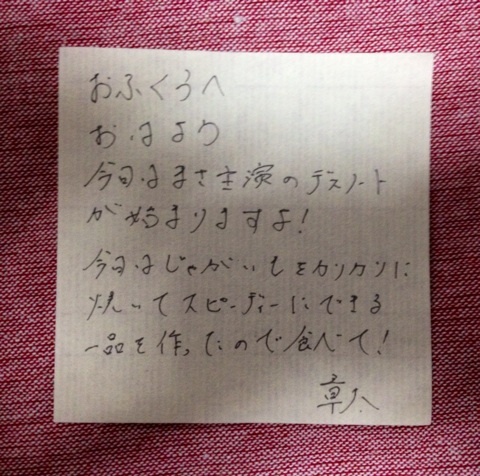 おふくろへ
おはよう
今日はまさ主演のデスノート
が始まりますよ!
今日はじゃがいもをカリカリに
焼いてスピーディーにできる
一品を作ったので食べて!
章人